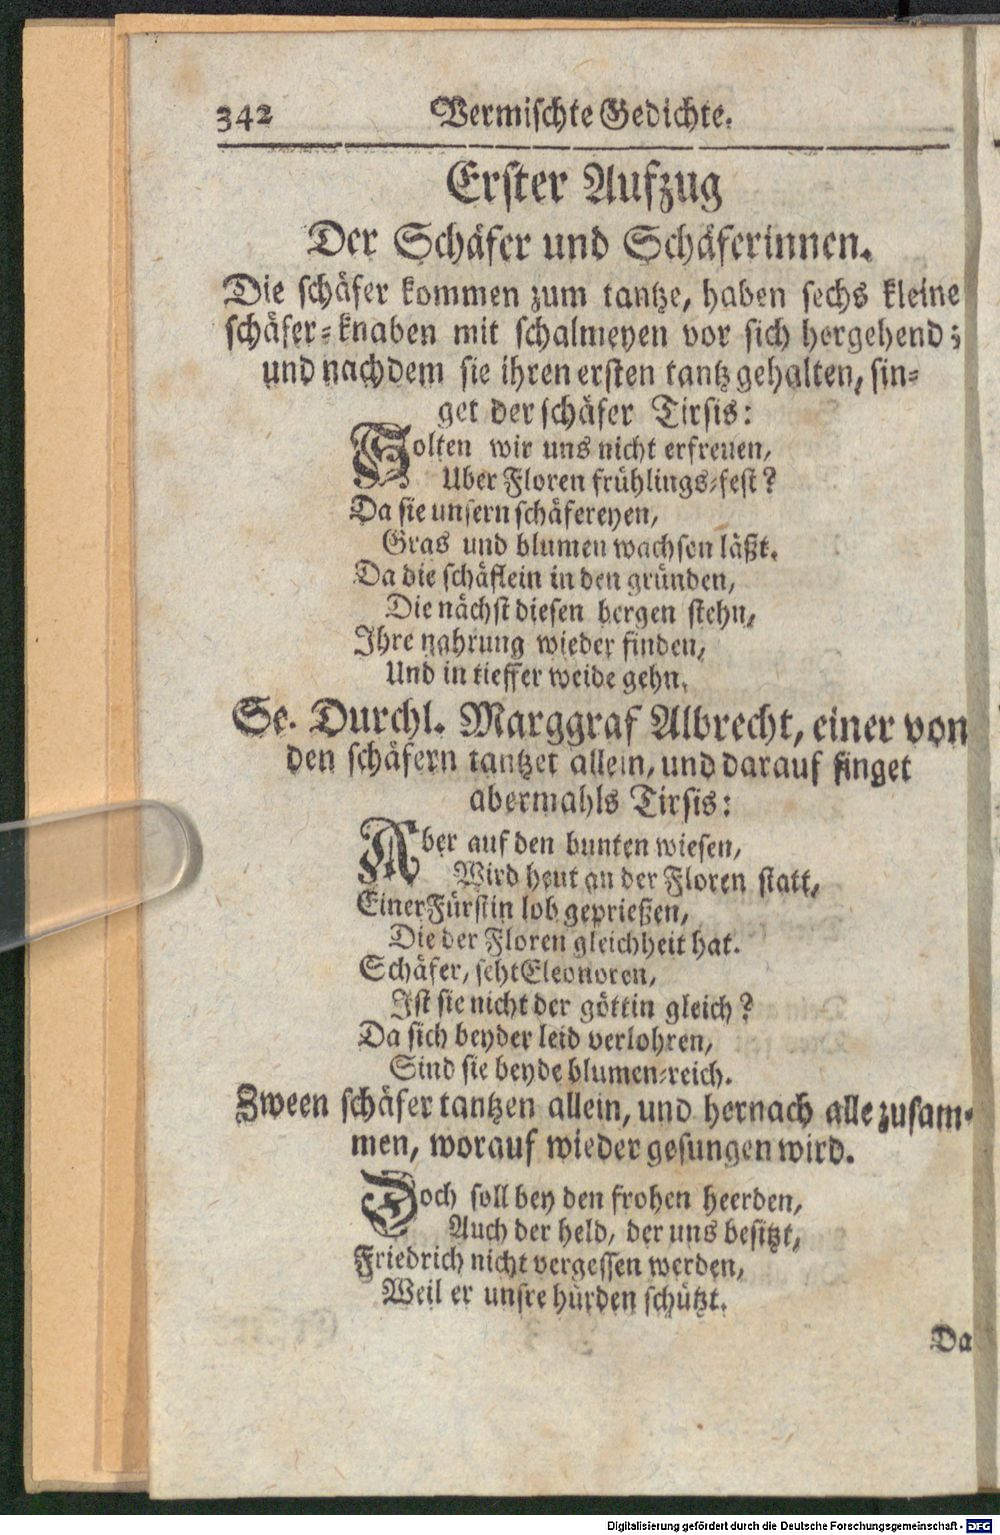 342 Vermischte Gedichte.
Erster Aufzug
Der Schäfer und Schäferinnen.
Die schäfer kommen zum tantze, haben sechs kleine
schäfer-knaben mit schalmeyen vor sich hergehend;
und nachdem sie ihren ersten tantz gehalten, sin-
get der schäfer Tirsis:
Solten wir uns nicht erfreuen,
Uber Floren frühlings-fest?
Da sie unsern schäfereyen,
Gras und blumen wachsen läßt.
Da die schäflein in den gründen,
Die nächst diesen bergen stehn,
Ihre nahrung wieder finden,
Und in tieffer weide gehn.
Se. Durchl. Marggraf Albrecht, einer von
den schäfern tantzet allein, und darauf singet
abermahls Tirsis:
Aber auf den bunten wiesen,
Wird heut an der Floren statt,
Einer Fürstin lob geprießen,
Die der Floren gleichheit hat.
Schäfer, seht Eleonoren,
Ist sie nicht der göttin gleich?
Da sich beyder leid verlohren,
Sind sie beyde blumen-reich.
Zween schäfer tantzen allein, und hernach alle zusam-
men, worauf wieder gesungen wird.
Doch soll bey den frohen heerden,
Auch der held, der uns besitzt,
Friedrich nicht vergessen werden,
Weil er unsre hürden schützt.
Da
Digitalisierung gefördert durch die Deutsche Forschungsgemeinschaft - DFG